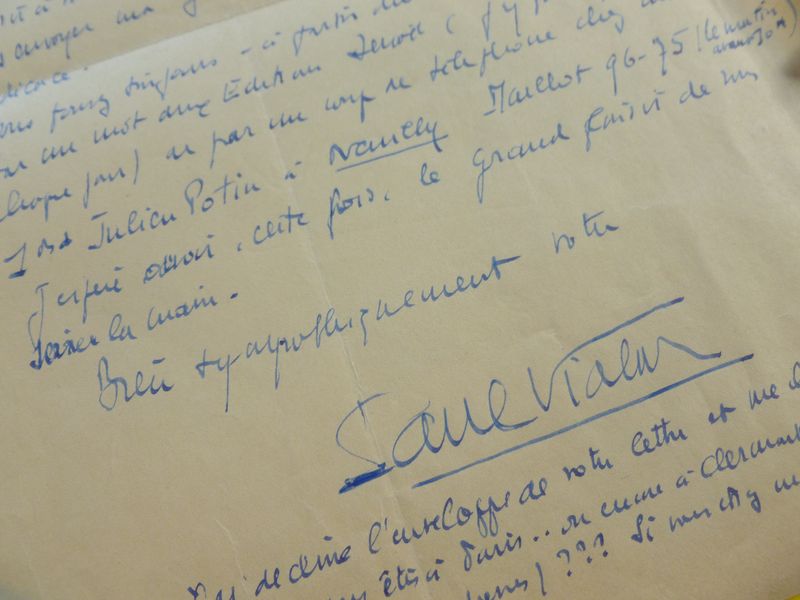 envoyer ma
dédicace.
toujours - à partir du
un mot aux Edition Denoël (j'y
chaque jour) ou par un coup de téléphone chez
1 bis Julien Potin à Neuilly Maillot 96-75 (le matin
avant 10 H)
J'espère avoir, cette fois, le grand plaisir de vous
serrer la main.
Bien sympathiquement votre
Paul Vialar
J'ai déchiré l'enveloppe de votre lettre et me
êtes à Paris... ou encore à Clermont
??? Si vous